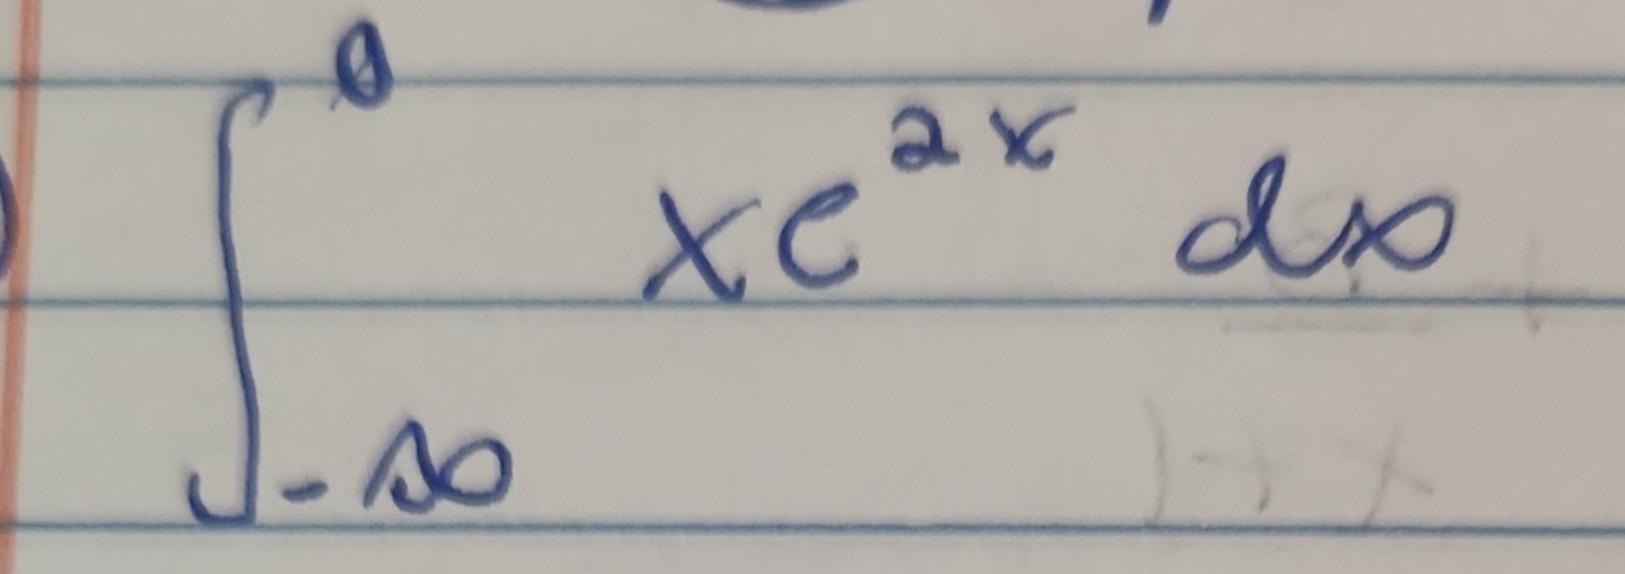 ∫_{-∞}^{0} xe^{2x} dx